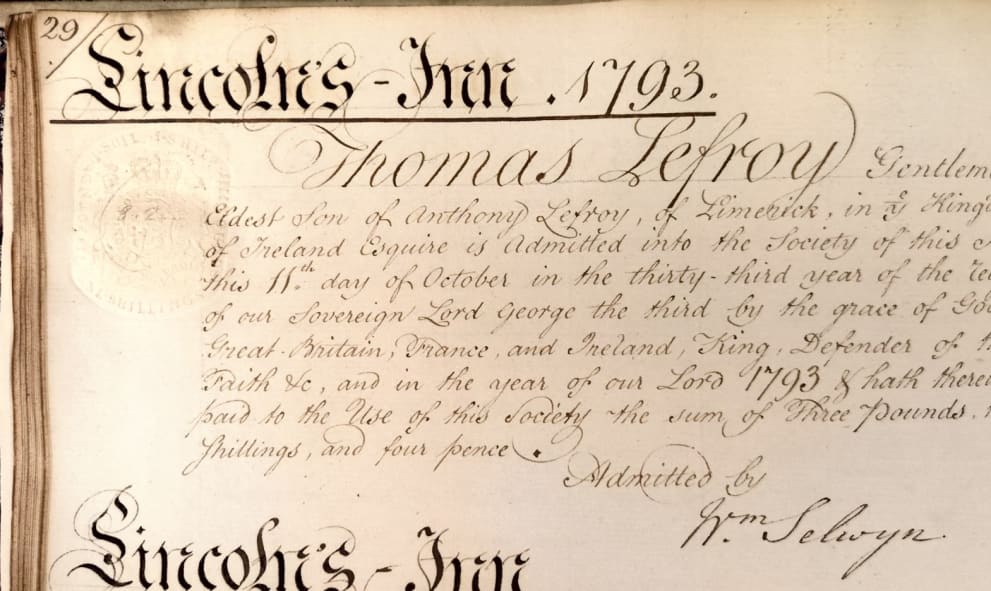 29
Lincoln's-Inn. 1793.
Thomas Lefroy Gentlem
Eldest Son of Anthony Lefroy, of Limerick, in ye King
of Ireland Esquire is Admitted into the Society of this
this 11th day of October in the thirty-third year of the
of our Sovereign Lord George the third by the grace of Go
Great-Britain, France, and Ireland, King, Defender of
Faith &c, and in the year of our Lord 1793 & hath there
paid to the Use of this Society the sum of Three Pounds,
Shillings, and four pence.
Admitted by
Wm Selwyn.
Lincoln's-Inn